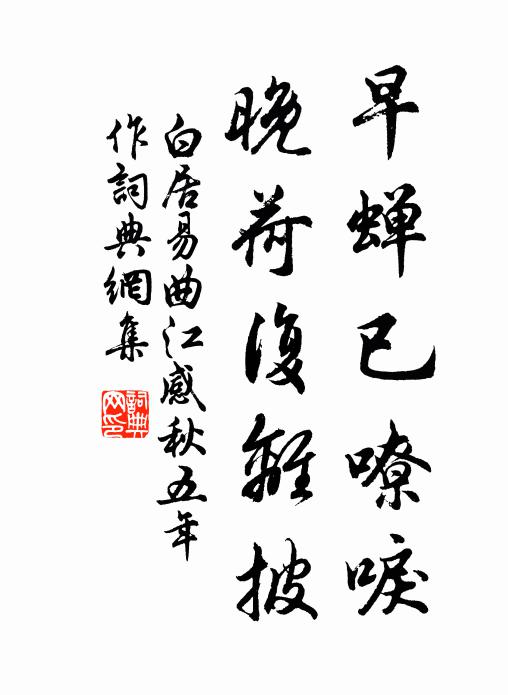 早蝉已嘹唳
晚荷復離披
白居易曲江感秋五年
作詞典網集
詞典
网印